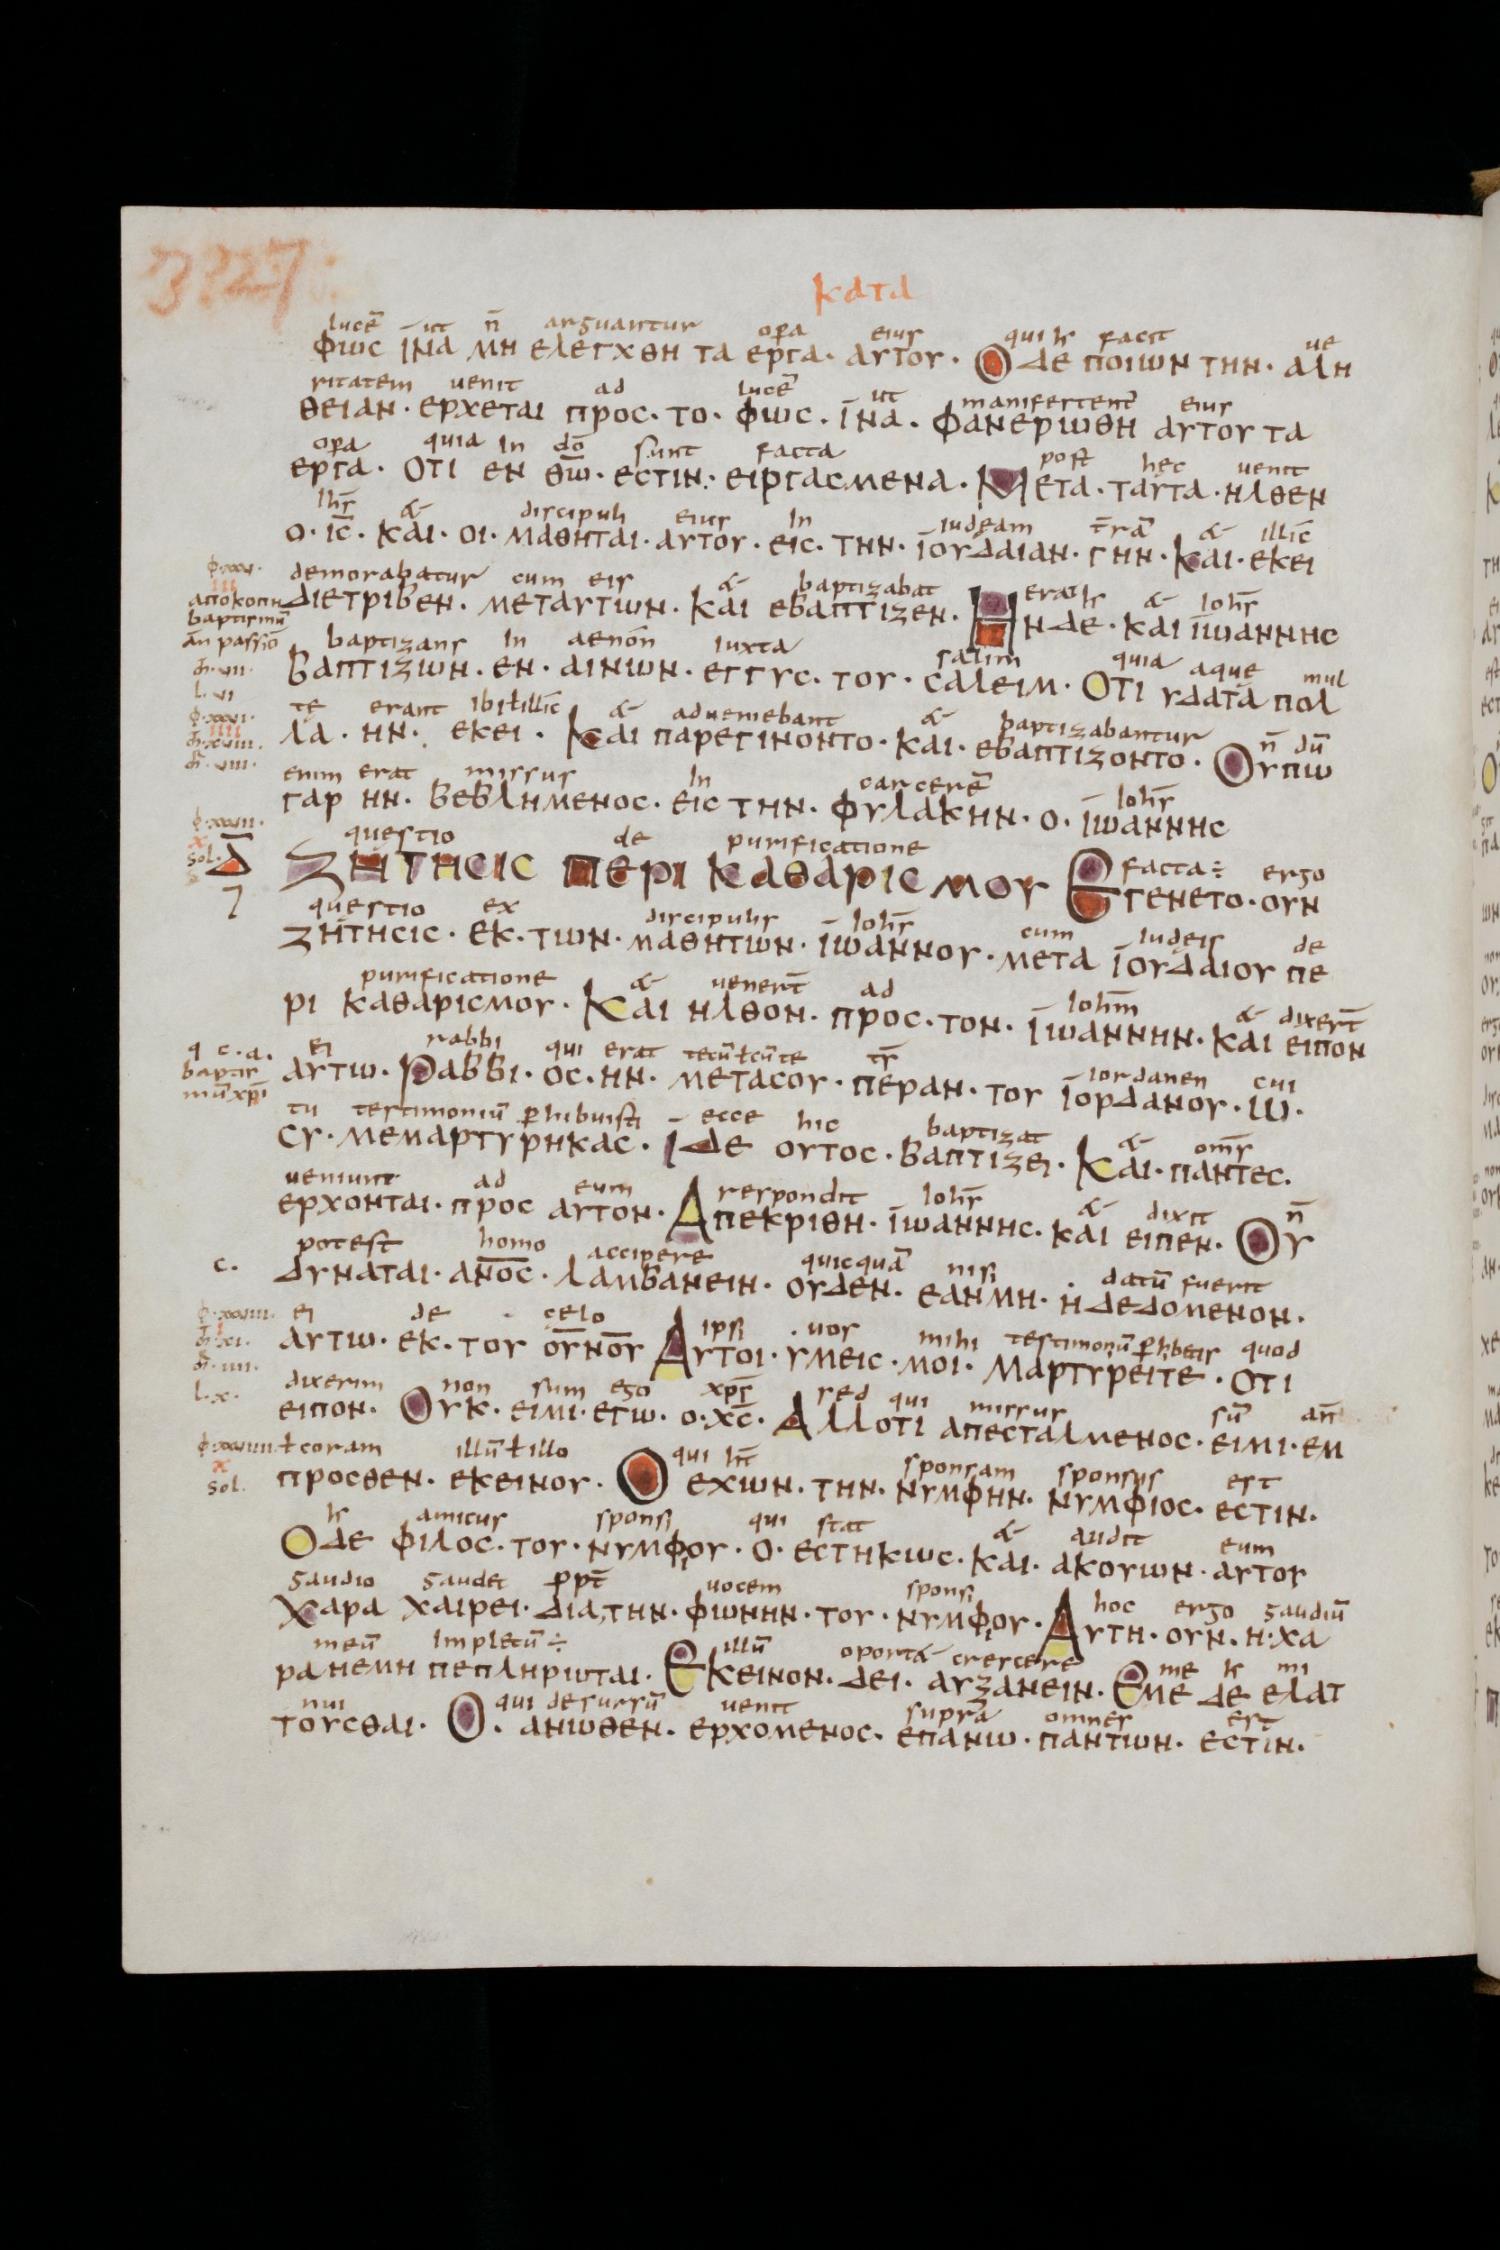 3327
κατα
lucē ut n̄ arguantur oꝑa eius qui h̄ facit ue
φως ϊνα μη ελεγχθη τα εργα· αυτου· Ο δε ποιων την· αλη
ritatem uenit ad lucē ut manifestent̄ eius
θειαν· ερχεται προς· το· φως· ϊνα· φανεριωθη αυτου τα
oꝑa quia in dō sunt facta post hęc uenit
εργα· οτι εν θω̄· εστιν· ειργασμενα· Μετα· ταυτα· ηλθεν
ihs̄ & discipuli eius in iudęam t̄rā & illic̄
ο· ις̄· και· οι· μαθηται· αυτου· εις· την· ϊουδαιαν· γην· και· εκει
demorabatur cum eis & baptizabat erat h̄ & ioh̄s
διετριβεν· μεταυτων· και εβαπτιζεν· Ην δε· και ϊωαννης
αποκοπη
baptismū
an̄ passiō
baptizans in aenōn iuxta salim quia aque mul
βαπτιζων· εν· αινων· εγγυς· του· σαλειμ· Οτι υδατα πολ
l· vi
tę erant ibi ł illic̄ & adueniebant & baptizabantur n̄ dū
λα· ην· εκει· Και παρεγινοντο· και· εβαπτιζοντο· Ουπω
enim erat missus in carcerē ioh̄s
γαρ ην· βεβλημενος· εις την· φυλακην· ο· ϊωαννης
questio de purificatione facta÷ ergo
sol· Δ̄ ζητησις περι καθαρισμου Εγενετο· ουν
questio ex discipulis ioh̄s cum iudeis de
ζητησις· εκ· των· μαθητων· ϊωαννου· μετα ϊουδαιου πε
purificatione & uenert̄ ad ioh̄m & dixert̄
ρι καθαρισμου· Και ηλθον· προς· τον· ϊωαννην· και ειπον
ei rabbi qui erat tecū ł cū te tr̄ iordanen cui
αυτω· Ραββι· ος· ην· μετασου· περαν· του ϊορδανου· ω·
q c·a·
baptis
mū xp̄i
tu testimoniū ꝑhibuisti ecce hic baptizat & om̄s
συ· μεμαρτυρηκας· ϊδε ουτος· βαπτιζει· Και· παντες·
ueniunt ad eum respondit ioh̄s & dixit n̄
ερχονται· προς αυτον· Απεκριθη· ϊωαννης· και ειπεν· Ου
potest homo accipere quicquā nisi datū fuerit
c· δυναται· ανος̄· λαμβανειν· ουδεν· εανμη· η δεδομενον·
ei de cęlo ipsi uos mihi testimoniū ꝑhibetis quod
αυτω· εκ· του ουνοῡ Αυτοι· υμεις· μοι· μαρτυρειτε· οτι
dixerim non sum ego xp̄s sed qui missus sū an̄
ειπον· Ουκ· ειμι· εγω· ο· χς̄· Αλλοτι απεσταλμενος· ειμι· εμ
l·x·
ł coram illū ł illo qui h̄t sponsam sponsus est
προσθεν· εκεινου· Ο εχων· την· νυμφην· νυμφιος· εστιν·
sol·
h̄ amicus sponsi qui stat & audit eum
Ο δε φιλος· του· νυμφιου· ο· εστηκως· και· ακουων· αυτου
gaudio gaudet ꝓpt̄ uocem sponsi hoc ergo gaudiū
χαρα χαιρει· δια την· φωνην· του· νυμφιου· Αυτη· ουν· η· χα
meū impletū÷ illū oport& crescere me h̄ mi
ρα η εμη πεπληρωται· Εκεινον· δει· αυξανειν· Εμε δε ελατ
nui qui desursū uenit supra omnes est
τουσθαι· Ο· ανωθεν· ερχομενος· επανω· παντων· εστιν·